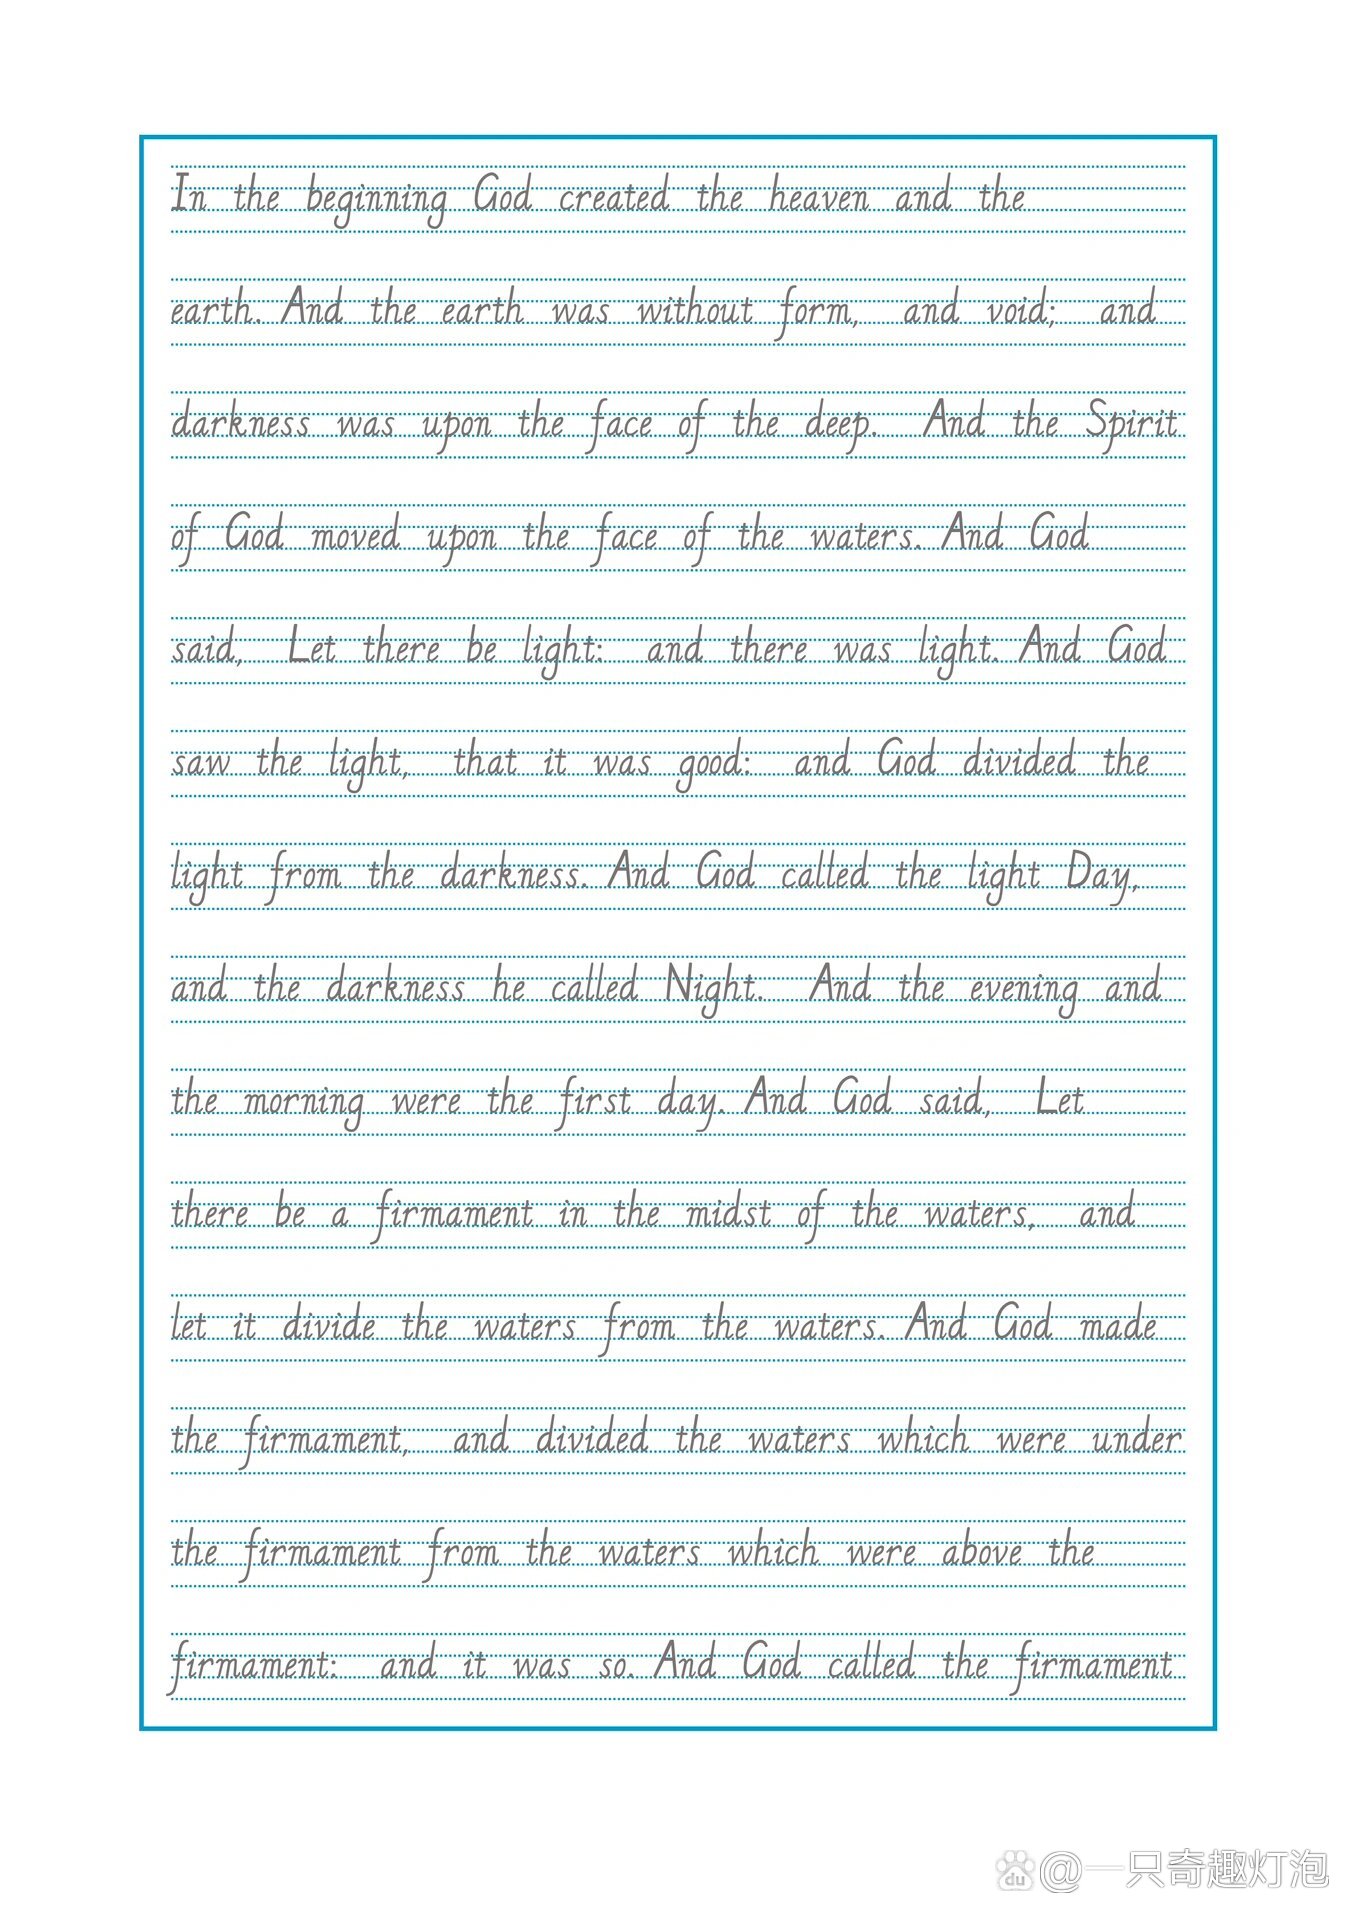 In the beginning God created the heaven and the
earth. And the earth was without form, and void; and
darkness was upon the face of the deep. And the Spirit
of God moved upon the face of the waters. And God
said, Let there be light: and there was light. And God
saw the light, that it was good: and God divided the
light from the darkness. And God called the light Day,
and the darkness he called Night. And the evening and
the morning were the first day. And God said, Let
there be a firmament in the midst of the waters, and
let it divide the waters from the waters. And God made
the firmament, and divided the waters which were under
the firmament from the waters which were above the
firmament: and it was so. And God called the firmament
du @一只奇趣灯泡